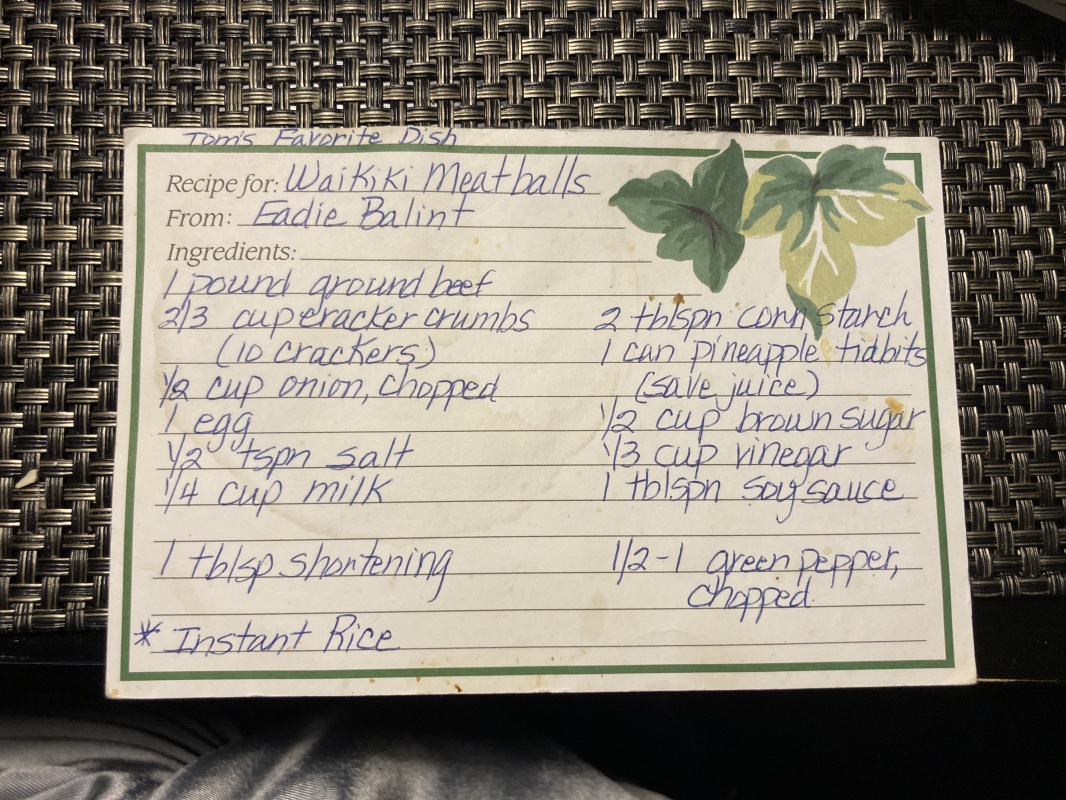 Tom's Favorite Dish
Recipe for: Waikiki Meatballs
From: Eadie Balint
Ingredients:
1 pound ground beef
2/3 cup cracker crumbs
(10 crackers)
1/2 cup onion, chopped
1 egg
1/2 tspn salt
1/4 cup milk
1 tblsp shortening
* Instant Rice
2 tblspn corn starch
1 can pineapple tidbits
(save juice)
1/2 cup brown sugar
1/3 cup vinegar
1 tblspn soy sauce
1/2-1 green pepper,
chopped